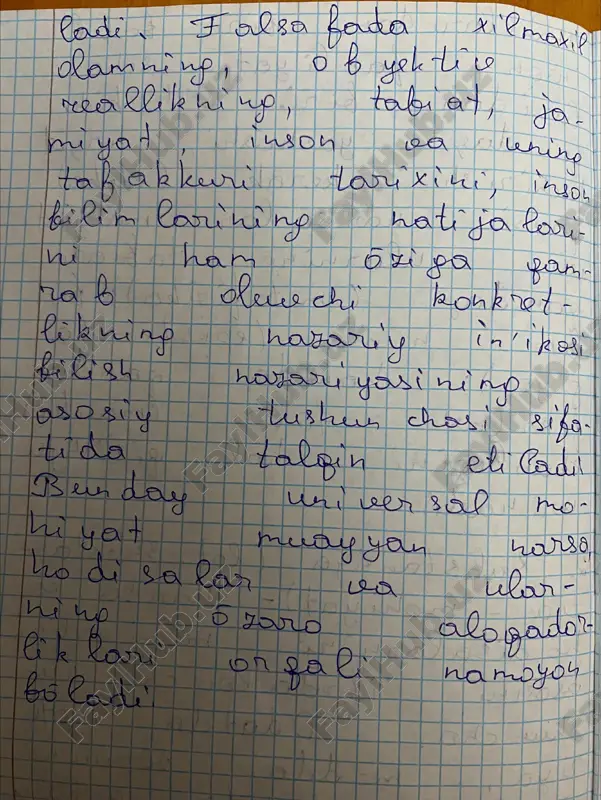 ladi. Falsafada xilmaxil
olamning, obyektiv
reallikning, tabiat, ja-
miyat, inson va uning
tafakkuri tarixini, inson
bilimlarining natijalari-
ni ham õziga qam-
rab oluvchi konkret-
likning nazariy in'ikosi
bilish nazariyasining
asosiy tushunchasi sifa-
tida talqin etiladi
Bunday universal mo-
hiyat muayyan narsa,
hodisalar va ular-
ning õzaro aloqador-
liklari orqali namoyon
bõladi
FaylHub.uz